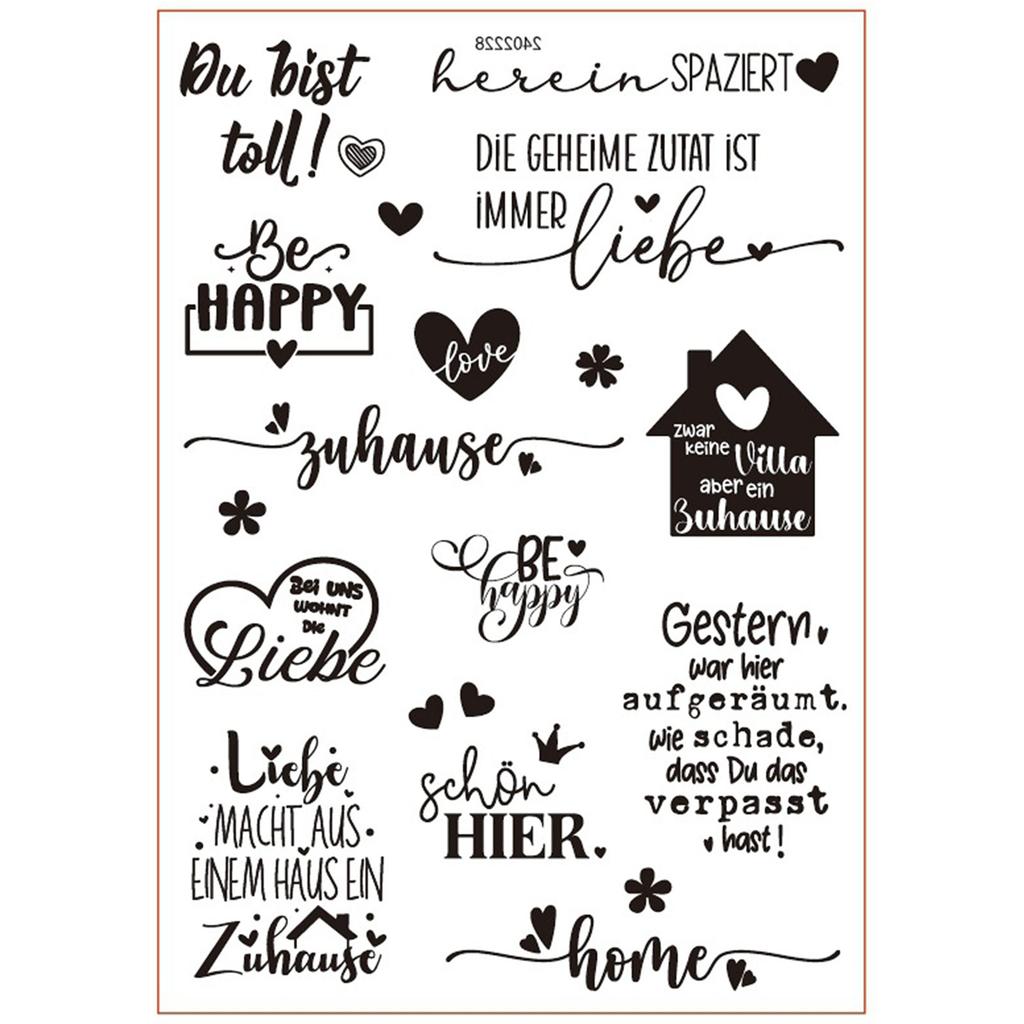 Du bist
toll!
2402228
herein SPAZIERT
DIE GEHEIME ZUTAT IST
IMMER liebe
Be
HAPPY
love
zuhause
zwar
keine Villa
aber ein
Zuhause
BE
happy
Bei UNS
WOHNT
Die
Liebe
Gestern
war hier
aufgeräumt.
wie schade,
dass Du das
verpasst
hast!
Liebe
MACHT AUS
EINEM HAUS EIN
Zuhause
schön
HIER.
home